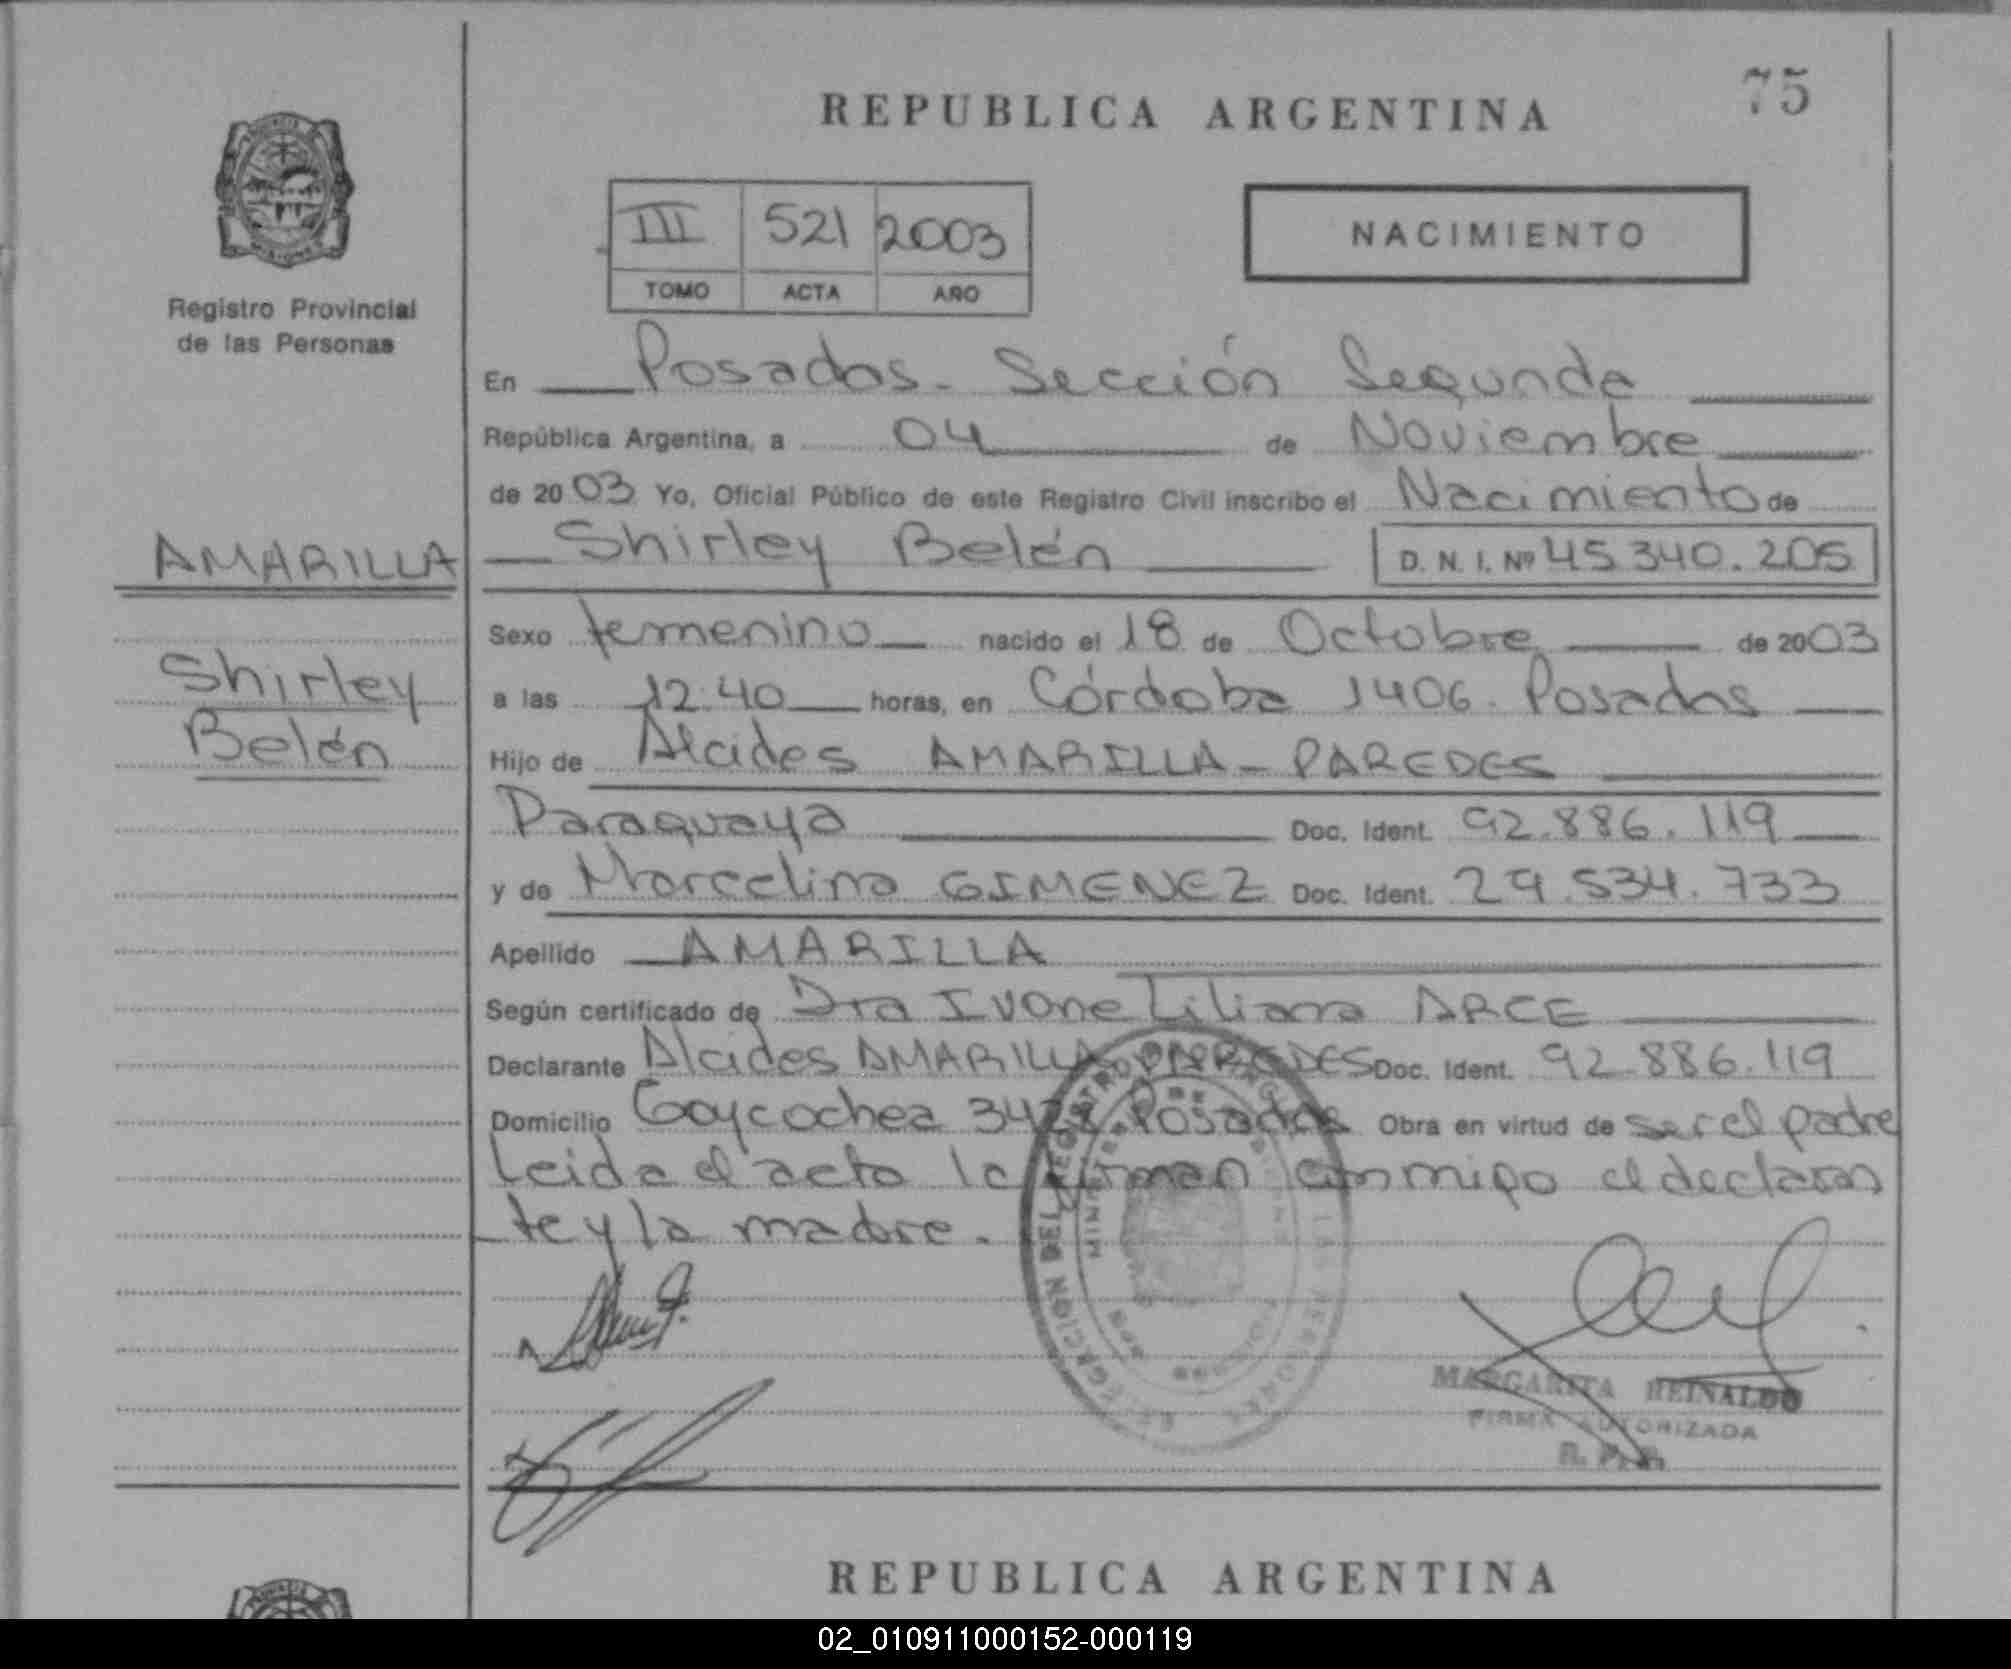 75
REPUBLICA ARGENTINA
III 521 2003
TOMO ACTA AÑO
NACIMIENTO
Registro Provincial
de las Personas
En Posadas. Sección Segunda
República Argentina, a 04 de Noviembre
de 2003 Yo, Oficial Público de este Registro Civil inscribo el Nacimiento de
AMARILLA
Shirley Belén D. N. I. Nº 45 340. 205
Sexo femenino nacido el 18 de Octubre de 2003
Shirley
Belén
a las 12.40 horas, en Córdoba 1406. Posadas
Hijo de Alcides AMARILLA - PAREDES
Paraguaya Doc. Ident. 92.886.119
y de Marcelina GIMENEZ Doc. Ident. 29.534.733
Apellido AMARILLA
Según certificado de Dra Ivone Liliana ARCE
Declarante Alcides AMARILLA PAREDES Doc. Ident. 92.886.119
Domicilio Goycochea Posadas Obra en virtud de ser el padre
Leida el acta la firman conmigo el declaran
te y la madre.
MARGARITA REINALDO
FIRMA AUTORIZADA
R. P. P.
REPUBLICA ARGENTINA
02_010911000152-000119